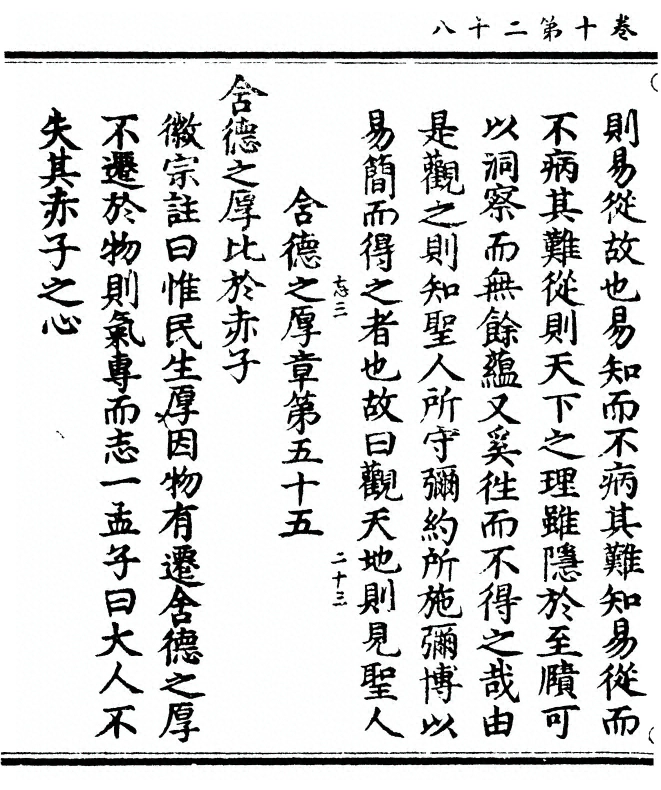 卷十第二千八
則易從故也易知而不病其難知易從而
不病其難從則天下之理雖隱於至賾可
以洞察而無餘蘊又奚徃而不得之哉由
是觀之則知聖人所守彌約所施彌博以
易簡而得之者也故曰觀天地則見聖人
忘三
二十三
含德之厚章第五十五
含德之厚比於赤子
徽宗註曰惟民生厚因物有遷含德之厚
不遷於物則氣專而志一孟子曰大人不
失其赤子之心